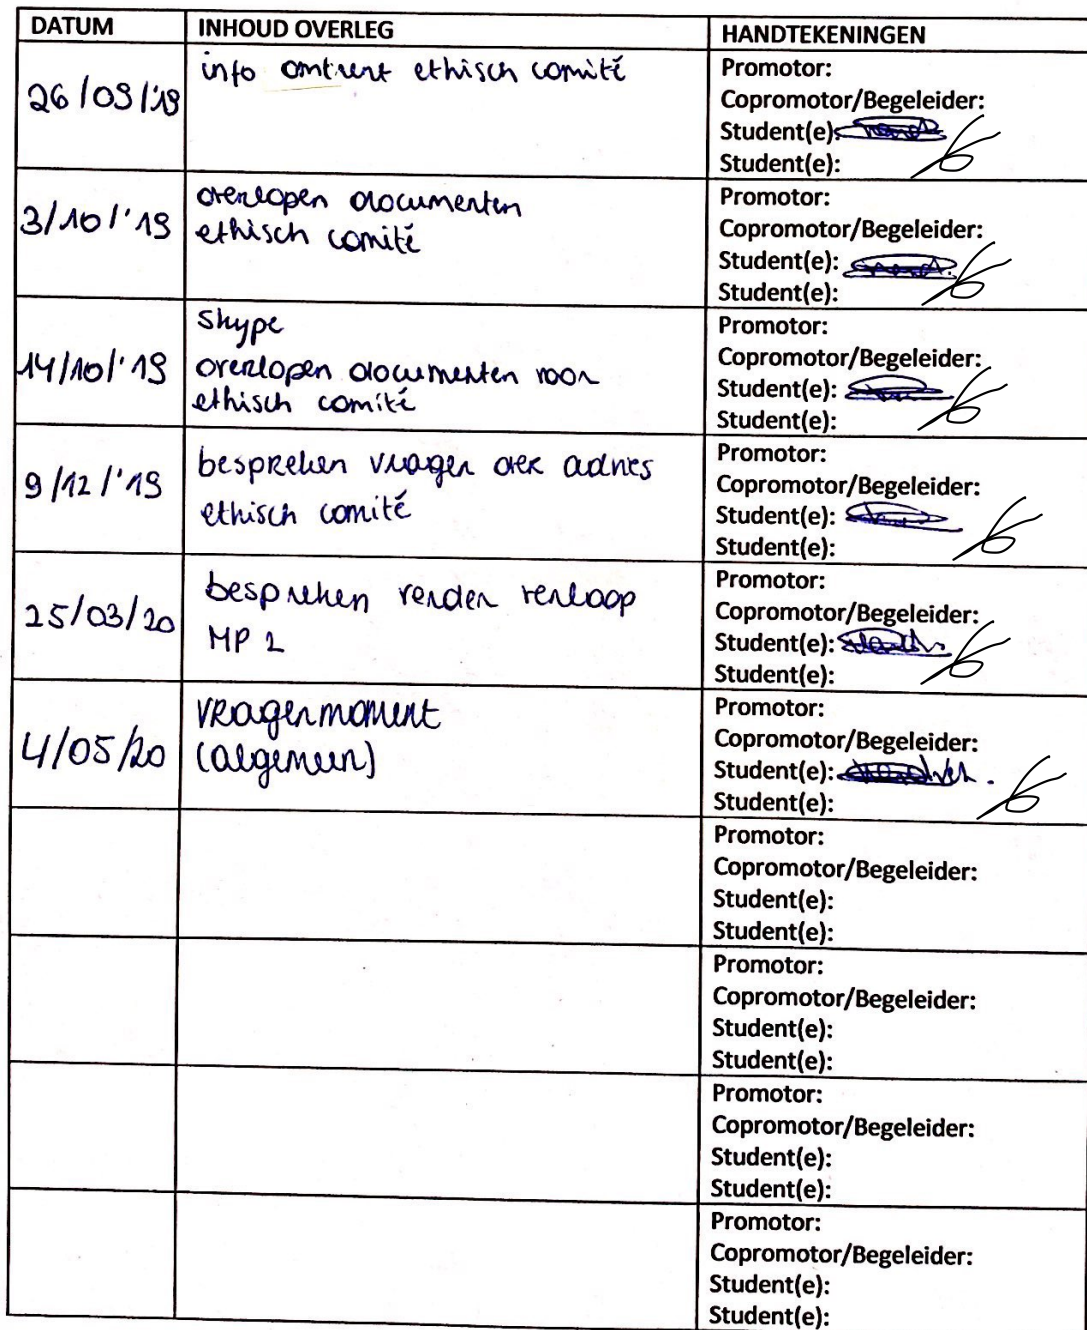 DATUM INHOUD OVERLEG HANDTEKENINGEN
26/09/'19 info omtrent ethisch comité Promotor:
Copromotor/Begeleider:
Student(e):
Student(e):
3/10/'19 overlopen documenten Promotor:
ethisch comité Copromotor/Begeleider:
Student(e):
Student(e):
14/10/'19 Skype Promotor:
overlopen documenten voor Copromotor/Begeleider:
ethisch comité Student(e):
Student(e):
9/12/'19 bespreken vragen over advies Promotor:
ethisch comité Copromotor/Begeleider:
Student(e):
Student(e):
25/03/20 bespreken verder verloop Promotor:
MP 2 Copromotor/Begeleider:
Student(e):
Student(e):
4/05/20 vragenmoment Promotor:
(algemeen) Copromotor/Begeleider:
Student(e):
Student(e):
Promotor:
Copromotor/Begeleider:
Student(e):
Student(e):
Promotor:
Copromotor/Begeleider:
Student(e):
Student(e):
Promotor:
Copromotor/Begeleider:
Student(e):
Student(e):
Promotor:
Copromotor/Begeleider:
Student(e):
Student(e):